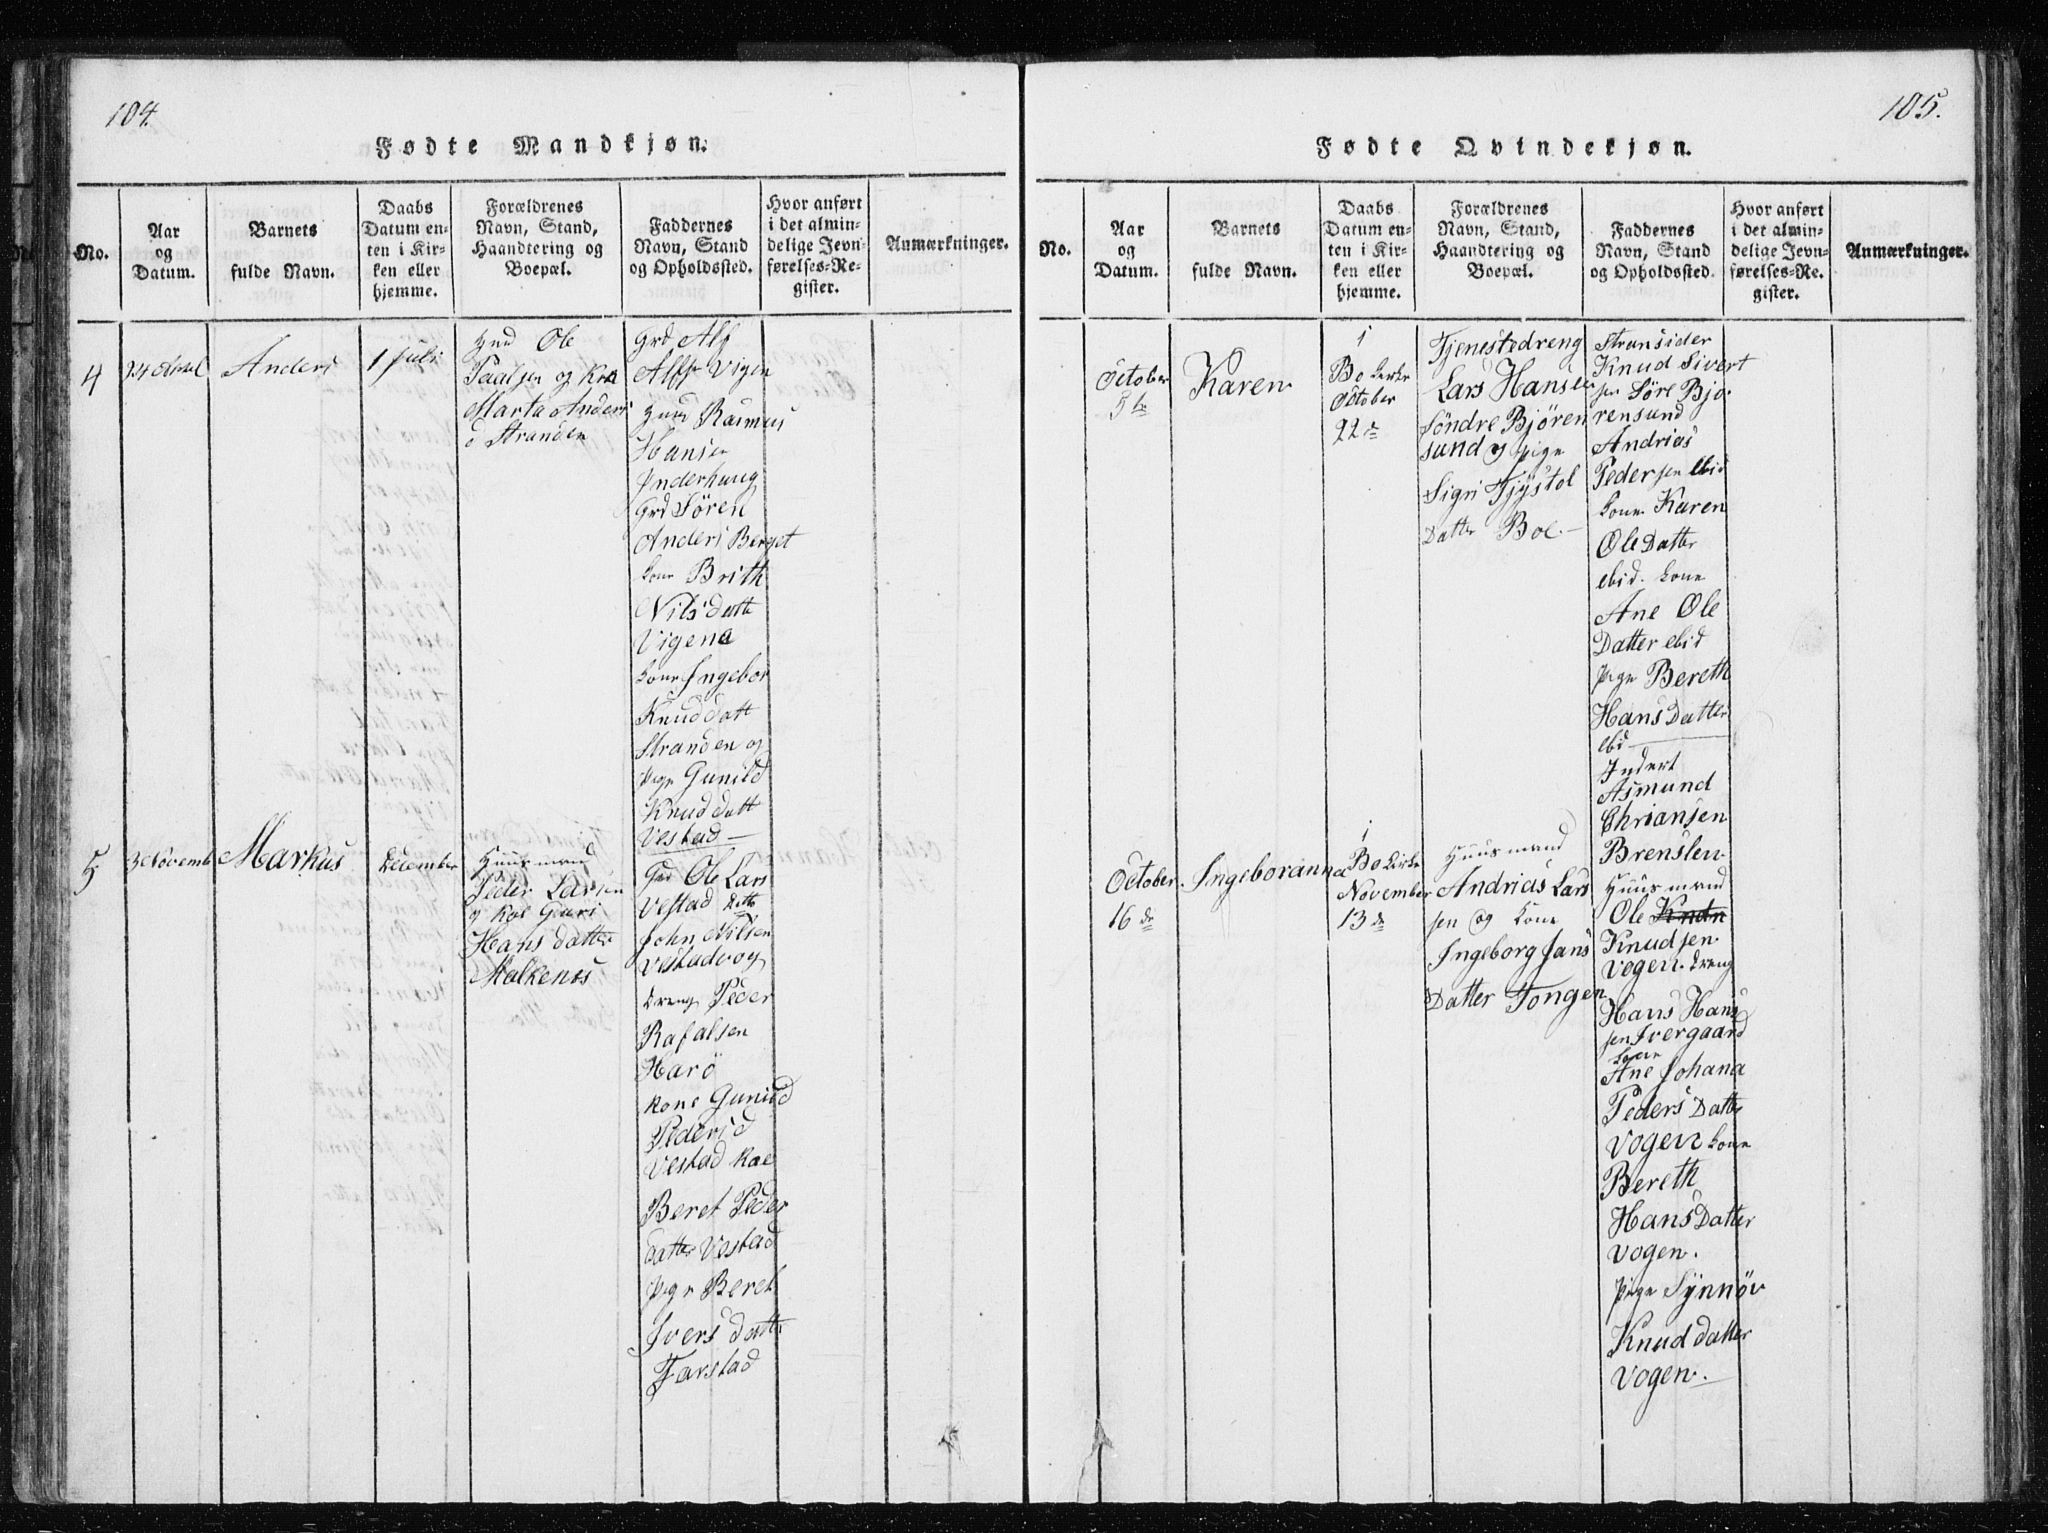 104.
Fødte Mandkjøn.
No.
Aar
og
Datum.
Barnets
fulde Navn.
Daabs
Datum en-
ten i Kir-
ken eller
hjemme.
Forældrenes
Navn, Stand,
Haandtering og
Boepæl.
Faddernes
Navn, Stand
og Opholdssted.
Hvor anført
i det almin-
delige Jevn-
førelses-Re-
gister.
Anmærkninger.
4
Anders
1 Juli
Ole
Paalsen og
Marta Anders
d Stranden
Grd Alf
Alfs Vigen
Huus Rasmus
Hansen
Inderhaug
Grd Sören
Anders Berget
kone Brith
Nils datt
Vigena
kone Ingebor
Knud datt
Stranden og
Pige Gunild
Knud datt
Vestad
5
3 Novemb
Markus
December
Huusmand
Peder Larsen
og Koe Guri
Hans datter
Malkenes
Grd Ole Lars
Vestad
John Nilsen
Vestad og
dreng Peder
Rafalsen
Harö
Kone Gunild
Peders d
Vestad Kae
Beret Peder
datter Vestad
Pige Beret
Ivers datter
Tarstad
105.
Fødte Qvindekjøn.
No.
Aar
og
Datum.
Barnets
fulde Navn.
Daabs
Datum en-
ten i Kir-
ken eller
hjemme.
Forældrenes
Navn, Stand,
Haandtering og
Boepæl.
Faddernes
Navn, Stand
og Opholdsted.
Hvor anført
i det almin-
delige Jevn-
førelses-Re-
gister.
Anmærkninger.
October
5te
Karen
i
Bo kirke
October
22de
Tjenestedreng
Lars Hansen
Söndre Björen
sund og pige
Sigri Tjøstol
Datter Boe.
Stransider
Knud Sivert
sen Söre Bjo
rensund
Andrias
Pedersen ebid
kone Karen
Ole Datter
ebid. kone
Ane Ole
Datter ebid
Pige Bereth
Hans Datter
ebi
Inderst
Asmund
Chriansen
Brenslen
October
16 de
Ingeboranna
i
Bo kirke
November
13 de
Huusmand
Andrias Lars
sen og kone
Ingeborg Jans
Datter Tongen
Huusmand
Ole
Knudsen
Vogen. dreng
Hans Hans
sen Ivergaard
kone
Ane Johana
Peders Datter
Vogen kone
Bereth
Hans Datter
Vogen.
Pige Synnöv
Knud datter
Vogen.